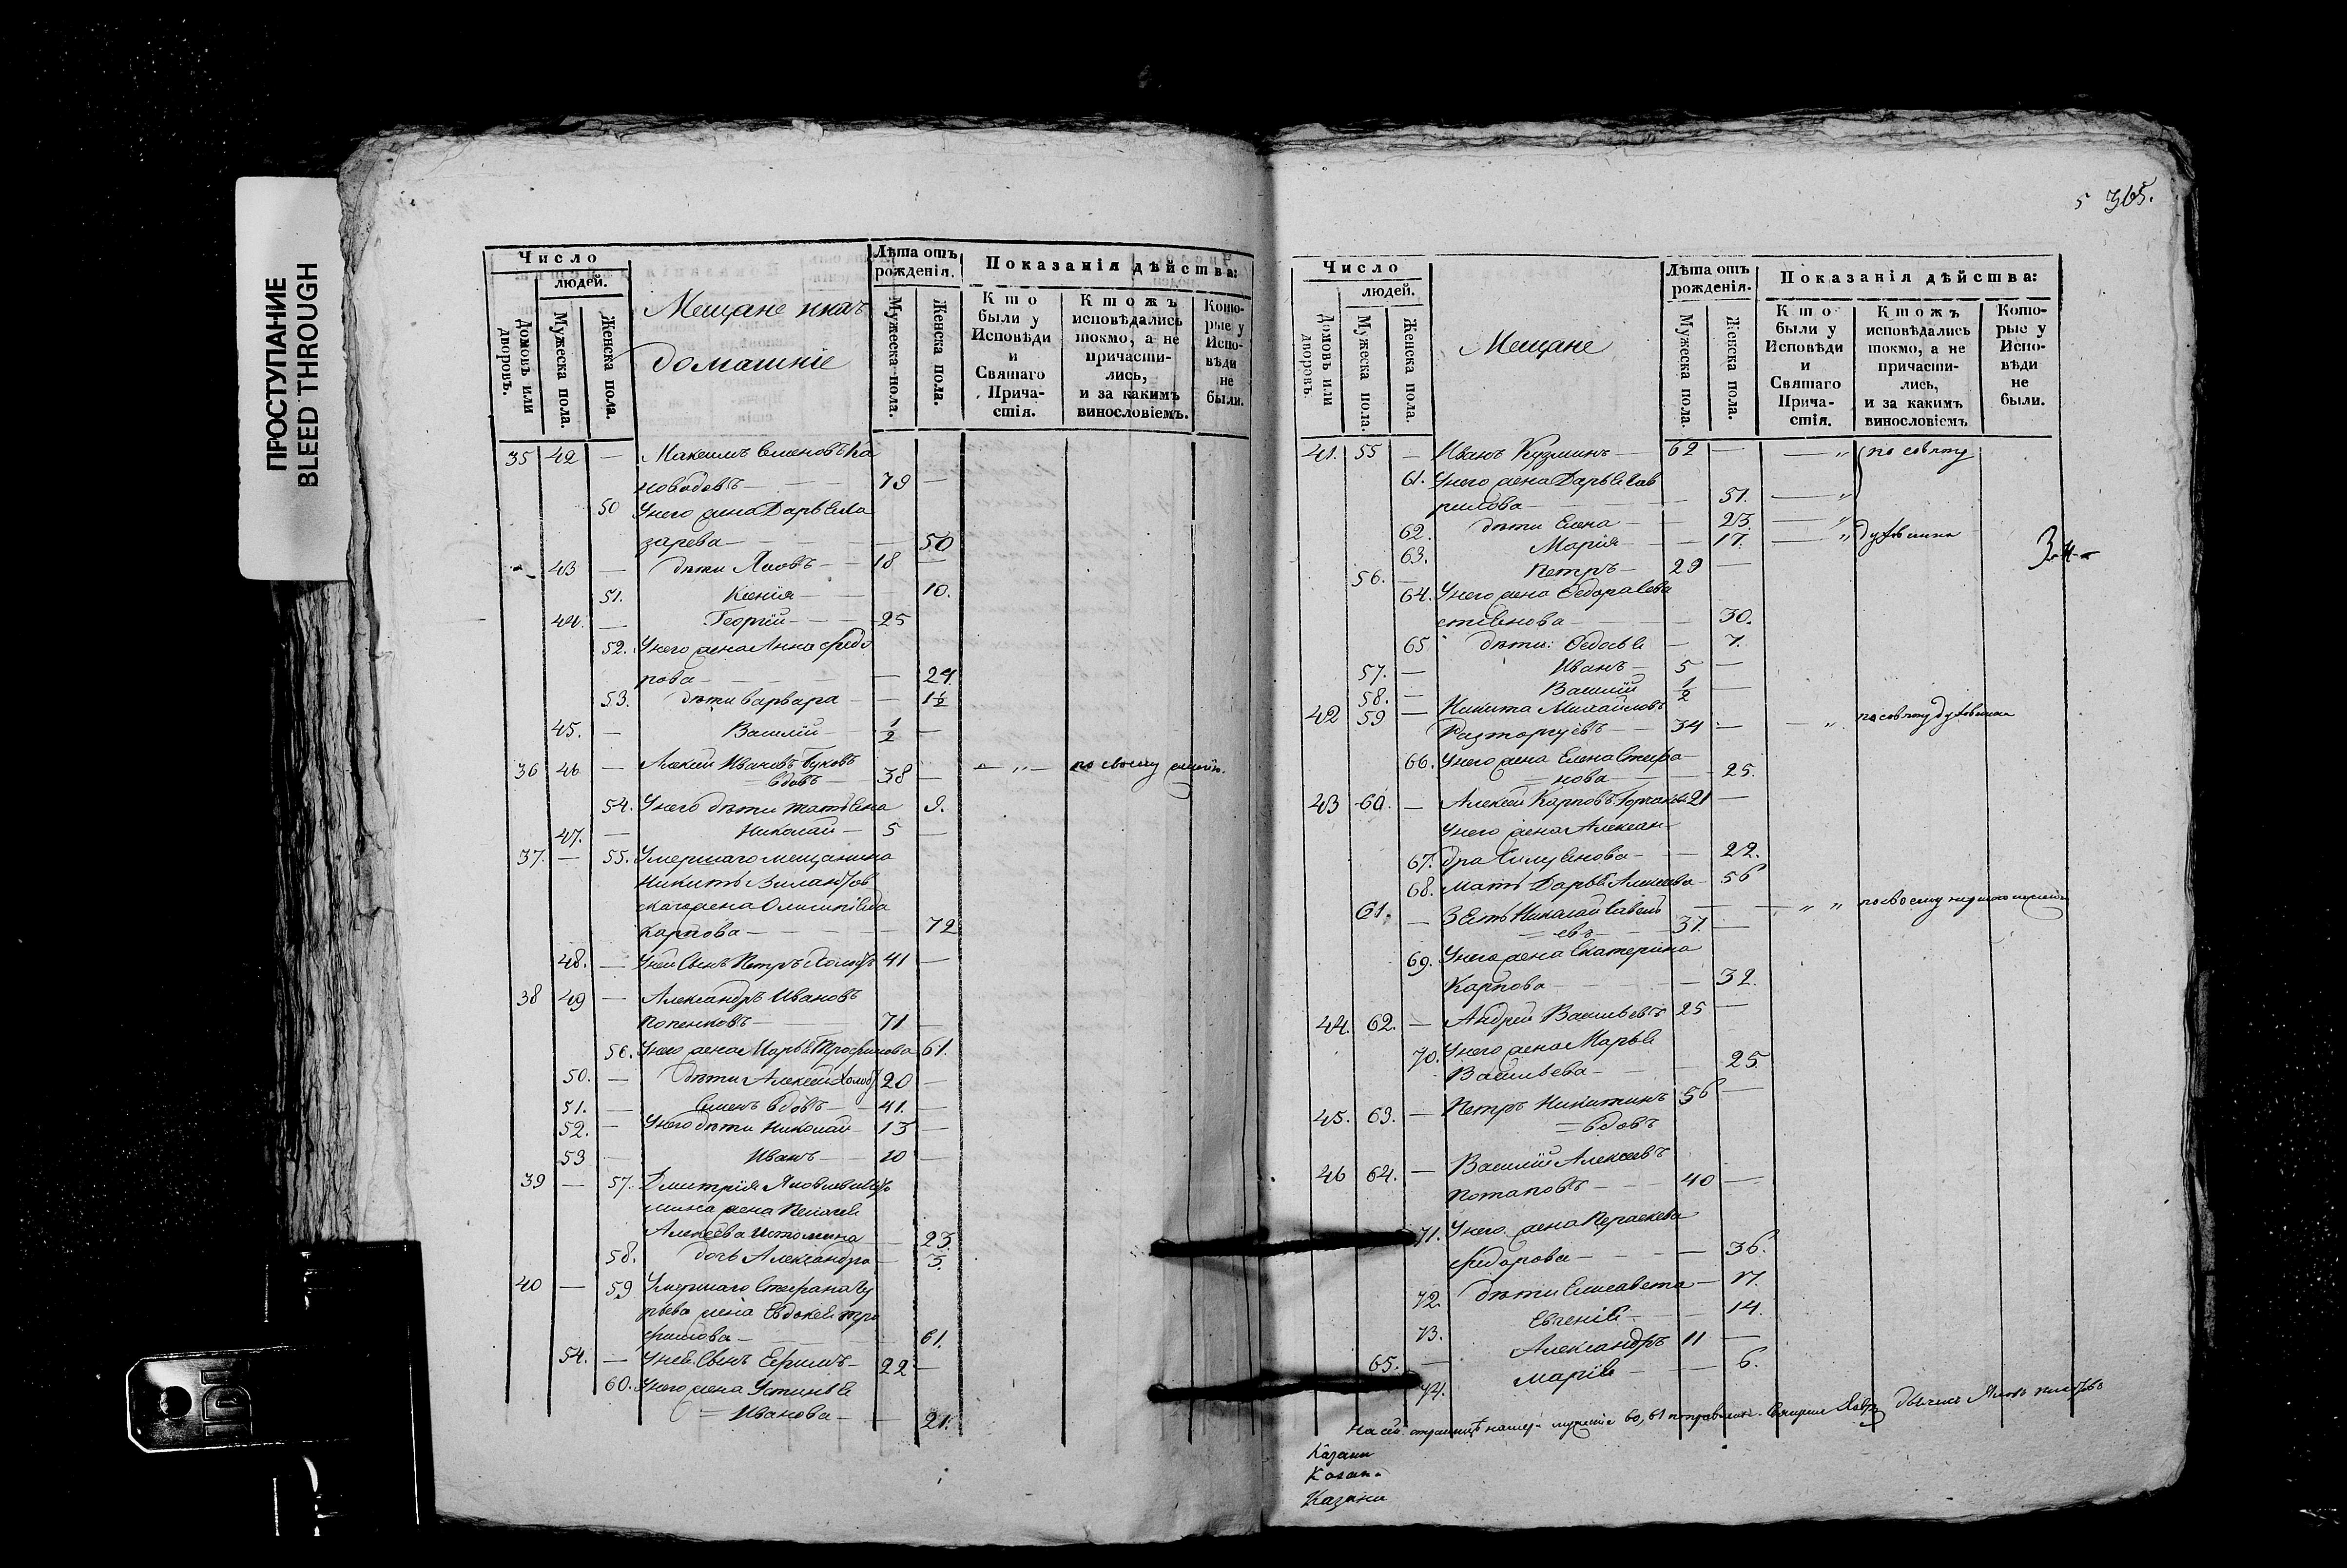 ПРОСТУПАНИЕ
BLEED THROUGH
Число
людей.
Домовъ или дворовъ.
Мужеска пола.
Женска пола.
Мещане и ихъ
домашніе
Лѣта отъ
рожденія.
Мужеска пола.
Женска пола.
Показанія дѣйства:
Кто
были у
Исповѣди
и
Святаго
Прича-
стія.
Ктожъ
исповѣдались
токмо, а не
причасти-
лись,
и за какимъ
винословіемъ.
Кото-
рые у
Испо-
вѣди
не
были.
35 42 — Максимъ Семеновъ Ка
новодовъ — 79 —
50 У него жена Дарья Ла
зарева — — 50
43 — дѣти Яковъ — 18 —
51. Ксенія — 10.
44. — Георгій — 25
52. У него жена Анна Ѳедо
рова — — 24.
53. дѣти Варвара — — 1½
45. — Василій — ½ —
36 46 — Алексѣй Ивановъ
вдовъ — 38 — — „ — по своему
54. У него дѣти Татьяна 9.
47. — Николай — 5 —
37. — 55. Умершаго мещанина
Никиты
жена Олимпіада
Карпова — — 72
48. — У ней сынъ Петръ холостъ 41 —
38 49 — Александръ Ивановъ
Попенковъ — 71 —
56. У него жена Марья Трофимова 61.
50. — дѣти Алексѣй холос 20 —
51. — Семенъ вдовъ — 41. —
52. — У него дѣти Николай — 13 —
53 Иванъ — 10 —
39 — 57. Дмитрія Яковлева
жена Пелагея
Алексѣева Истомина — 23.
58. дочь Александра — 3.
40 — 59 Умершаго Стефана Гу
рьева жена Евдокея Тро
фимова — 61.
54. — У ней сынъ Ефимъ — 22 —
60. У него жена Устинья
= Иванова — — 21.
5 365.
Число
людей.
Домовъ или дворовъ.
Мужеска пола.
Женска пола.
Мещане
Лѣта отъ
рожденія.
Мужеска пола.
Женска пола.
Показанія дѣйства:
Кто
были у
Исповѣди
и
Святаго
Прича-
стія.
Ктожъ
исповѣдались
токмо, а не
причасти-
лись,
и за какимъ
винословіемъ
Кото-
рые у
Испо-
вѣди
не
были.
41. 55 — Иванъ Кузминъ — 62 — — „ по совѣту
61. У него жена Дарья Гав
рилова — — 51. — „
62. дѣти Елена — — 23. — „
63. Марія — — 17. — „ духовника
56. — Петръ — 29 —
64. У него жена Ѳедора Сева
стьянова — — 30.
65 дѣти: Ѳедосья — 7.
57. — Иванъ — 5 —
58. — Василій ½ —
42 59 — Никита Михайловъ
Расторгуевъ — 34 — — „ по совѣту духовника
66. У него жена Елена Стефа
= нова — — 25.
43 60. — Алексѣй Карповъ 21 —
У него жена Алексан-
67. дра — — 22.
68. Мать Дарья Алексѣева — 56
61. — Зять Николай Савель
= евъ — 37. — — „ „ по своему
69. У него жена Екатерина
Карпова — — 32.
44. 62. — Андрей Васильевъ 25 —
70. У него жена Марья
Васильева — — 25.
45. 63. — Петръ Никитинъ 56 —
= вдовъ
46 64. — Василій Алексѣевъ
Потаповъ — 40 —
71. У него жена Параскева
Ѳедорова — — 36.
72. дѣти Елисавета — 17.
73. Евгенія — — 14.
65. — Александръ 11 —
74. Марія — — 6.
На сей страницѣ 60, 61
Казани
Казан
Казани